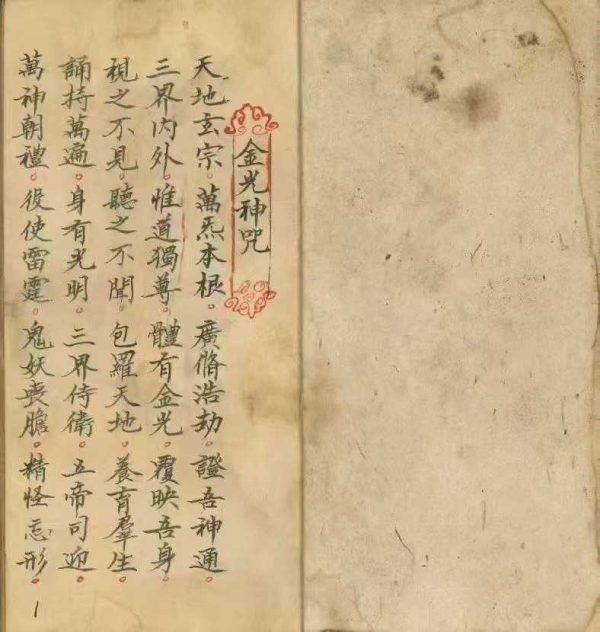 金光神咒
天地玄宗。萬炁本根。廣脩浩劫。證吾神通。
三界內外。惟道獨尊。體有金光。覆映吾身。
視之不見。聽之不聞。包羅天地。養育羣生。
誦持萬遍。身有光明。三界侍衛。五帝司迎。
萬神朝禮。役使雷霆。鬼妖喪膽。精怪忘形。
1